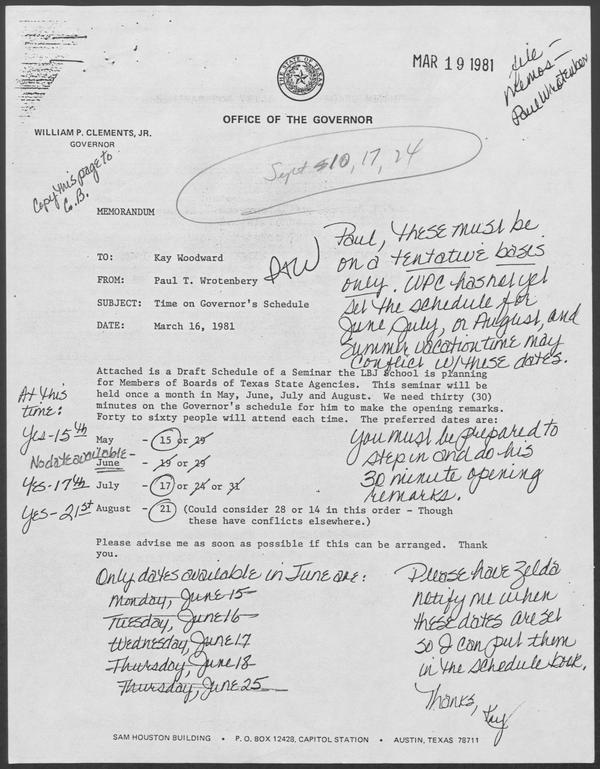 MAR 19 1981
file -
Memos -
Paul Wrotenbery
THE STATE OF TEXAS
OFFICE OF THE GOVERNOR
WILLIAM P. CLEMENTS, JR.
GOVERNOR
Copy this page to
G.B.
Sept 10, 17, 24
MEMORANDUM
TO: Kay Woodward
FROM: Paul T. Wrotenbery
PTW
SUBJECT: Time on Governor's Schedule
DATE: March 16, 1981
Paul, these must be
on a tentative basis
only. WPC has not yet
set the schedule for
June, July, or August, and
Summer vacation time may
conflict w/these dates.
Attached is a Draft Schedule of a Seminar the LBJ School is planning
for Members of Boards of Texas State Agencies. This seminar will be
held once a month in May, June, July and August. We need thirty (30)
minutes on the Governor's schedule for him to make the opening remarks.
Forty to sixty people will attend each time. The preferred dates are:
At this
time:
Yes - 15th
May - 15 or 29
No date available -
June - 19 or 29
Yes - 17th
July - 17 or 24 or 31
Yes - 21st
August - 21 (Could consider 28 or 14 in this order - Though
these have conflicts elsewhere.)
You must be prepared to
step in and do his
30 minute opening
remarks.
Please advise me as soon as possible if this can be arranged. Thank
you.
Only dates available in June are:
Monday, June 15
Tuesday, June 16
Wednesday, June 17
Thursday, June 18
Thursday, June 25
Please have Zelda
notify me when
these dates are set
so I can put them
in the schedule book.
Thanks,
Kay
SAM HOUSTON BUILDING • P. O. BOX 12428, CAPITOL STATION • AUSTIN, TEXAS 78711